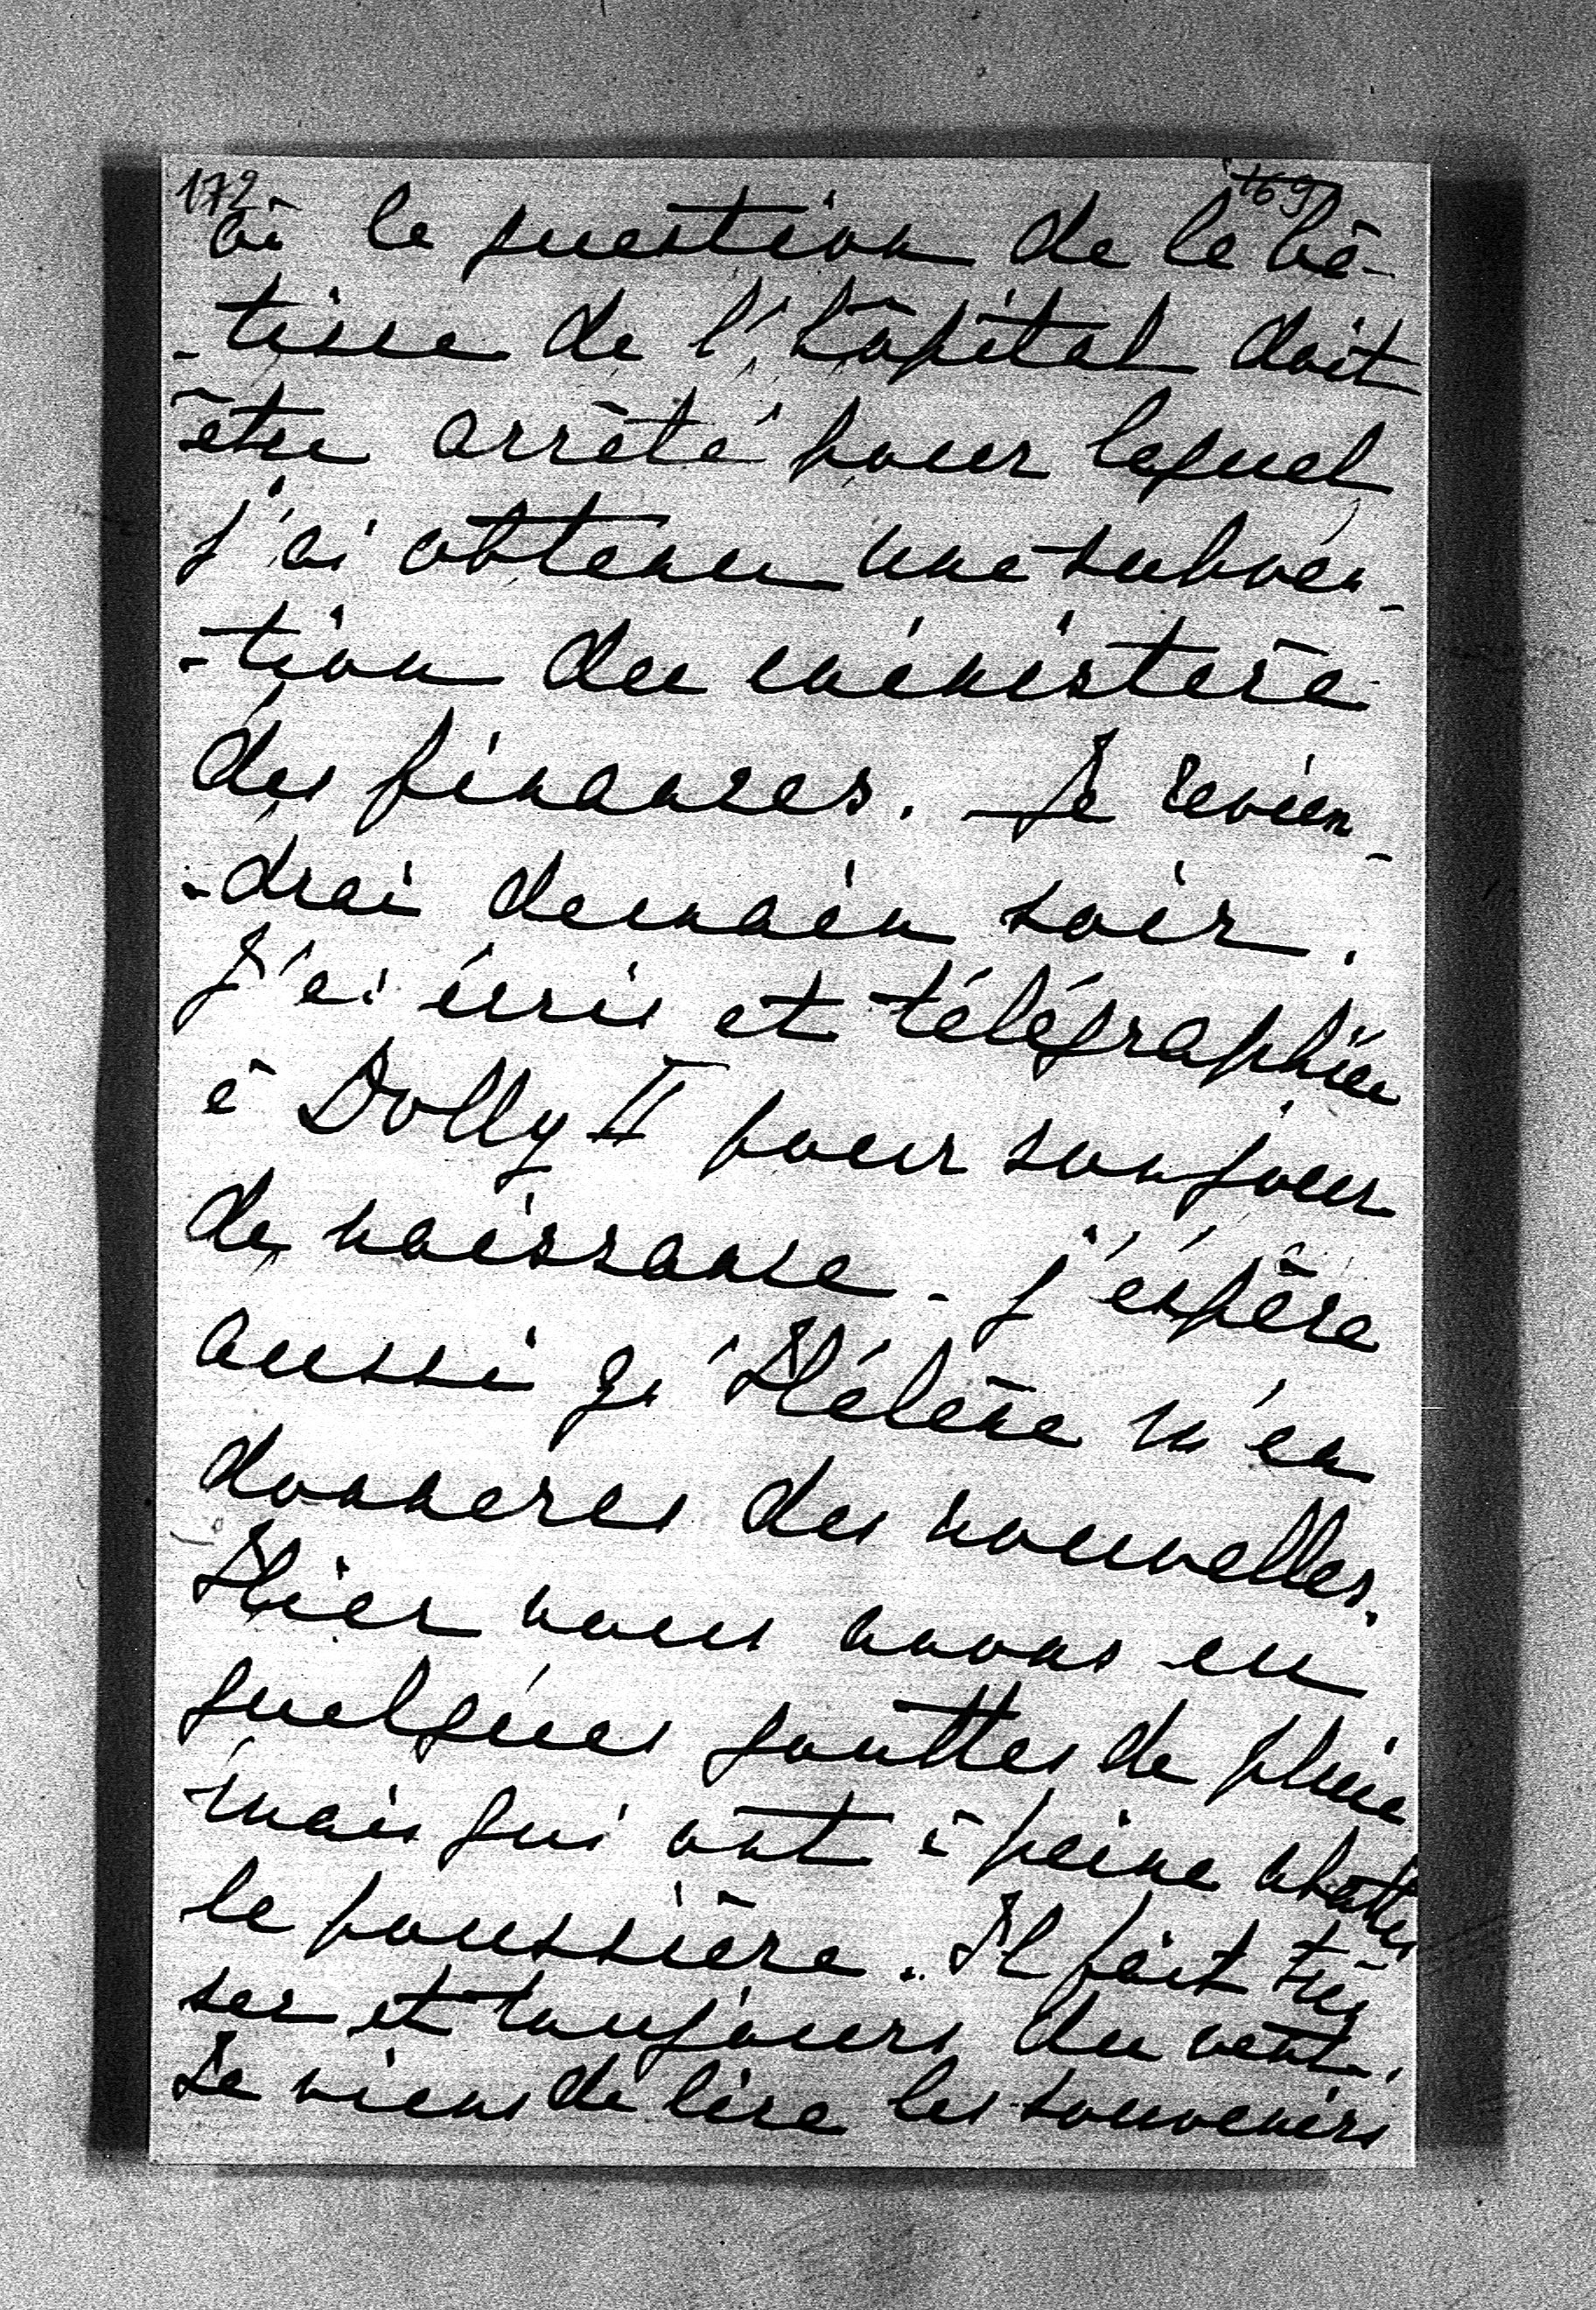 172 169
où la question de la bâ-
-tisse de l'hôpital doit
être arrêté pour lequel
j'ai obtenu une subven-
-tion du ministère
des finances. Je revien-
-drai demain soir.
J'ai écris et télégraphiée
à Dolly II pour son jour
de naissance - j'éspère
aussi qu'Hélène m'en
donneras des nouvelles.
Hier nous avons eu
quelques gouttes de pluie
mais qui ont à peine abattu
la poussière. Il fait très
sec et toujours du vent.
Je viens de lire les souvenirs